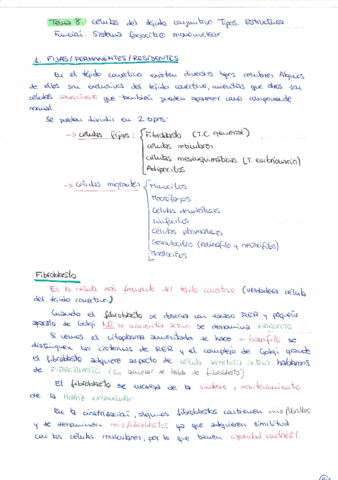 Tema 8. Células del tejido conjuntivo. Tipos. Estructura.
Función. Sistema fagocítico mononuclear.
1. FIJAS/PERMANENTES/RESIDENTES
En el tejido conectivo existen diversos tipos celulares. Algunos
de ellos son exclusivos del tejido conectivo, mientras que otros son
células sanguíneas que también pueden aparecer como componente
normal.
Se pueden dividir en 2 tipos:
→ células fijas: Fibroblasto (T.C general)
células reticulares
células mesenquimáticas (T. embrionario)
Adipocitos
→ células migrantes Monocitos
Macrófagos
Células dendríticas
Linfocitos
Células plasmáticas
Granulocitos (eosinófilo y neutrófilos)
Mastocitos
Fibroblasto
Es la célula más frecuente del tejido conectivo (verdadera célula
del tejido conectivo).
Cuando el fibroblasto se observa con escaso RER y pequeño
aparato de Golgi NO se encuentra activo se denomina FIBROCITO
Si vemos el citoplasma aumentado se hace + basófilo se
distinguen las cisternas de RER y el complejo de Golgi grande
el fibroblasto adquiere aspecto de célula secretora activa hablamos
de FIBROBLASTO (En general se habla de fibroblasto)
El fibroblasto se encarga de la síntesis, mantenimiento
de la matriz extracelular
En la cicatrización, algunos fibroblastos contienen miofibrillas
y se denominan miofibroblastos ya que adquieren similitud
con las células musculares, por lo que tienen capacidad contráctil.